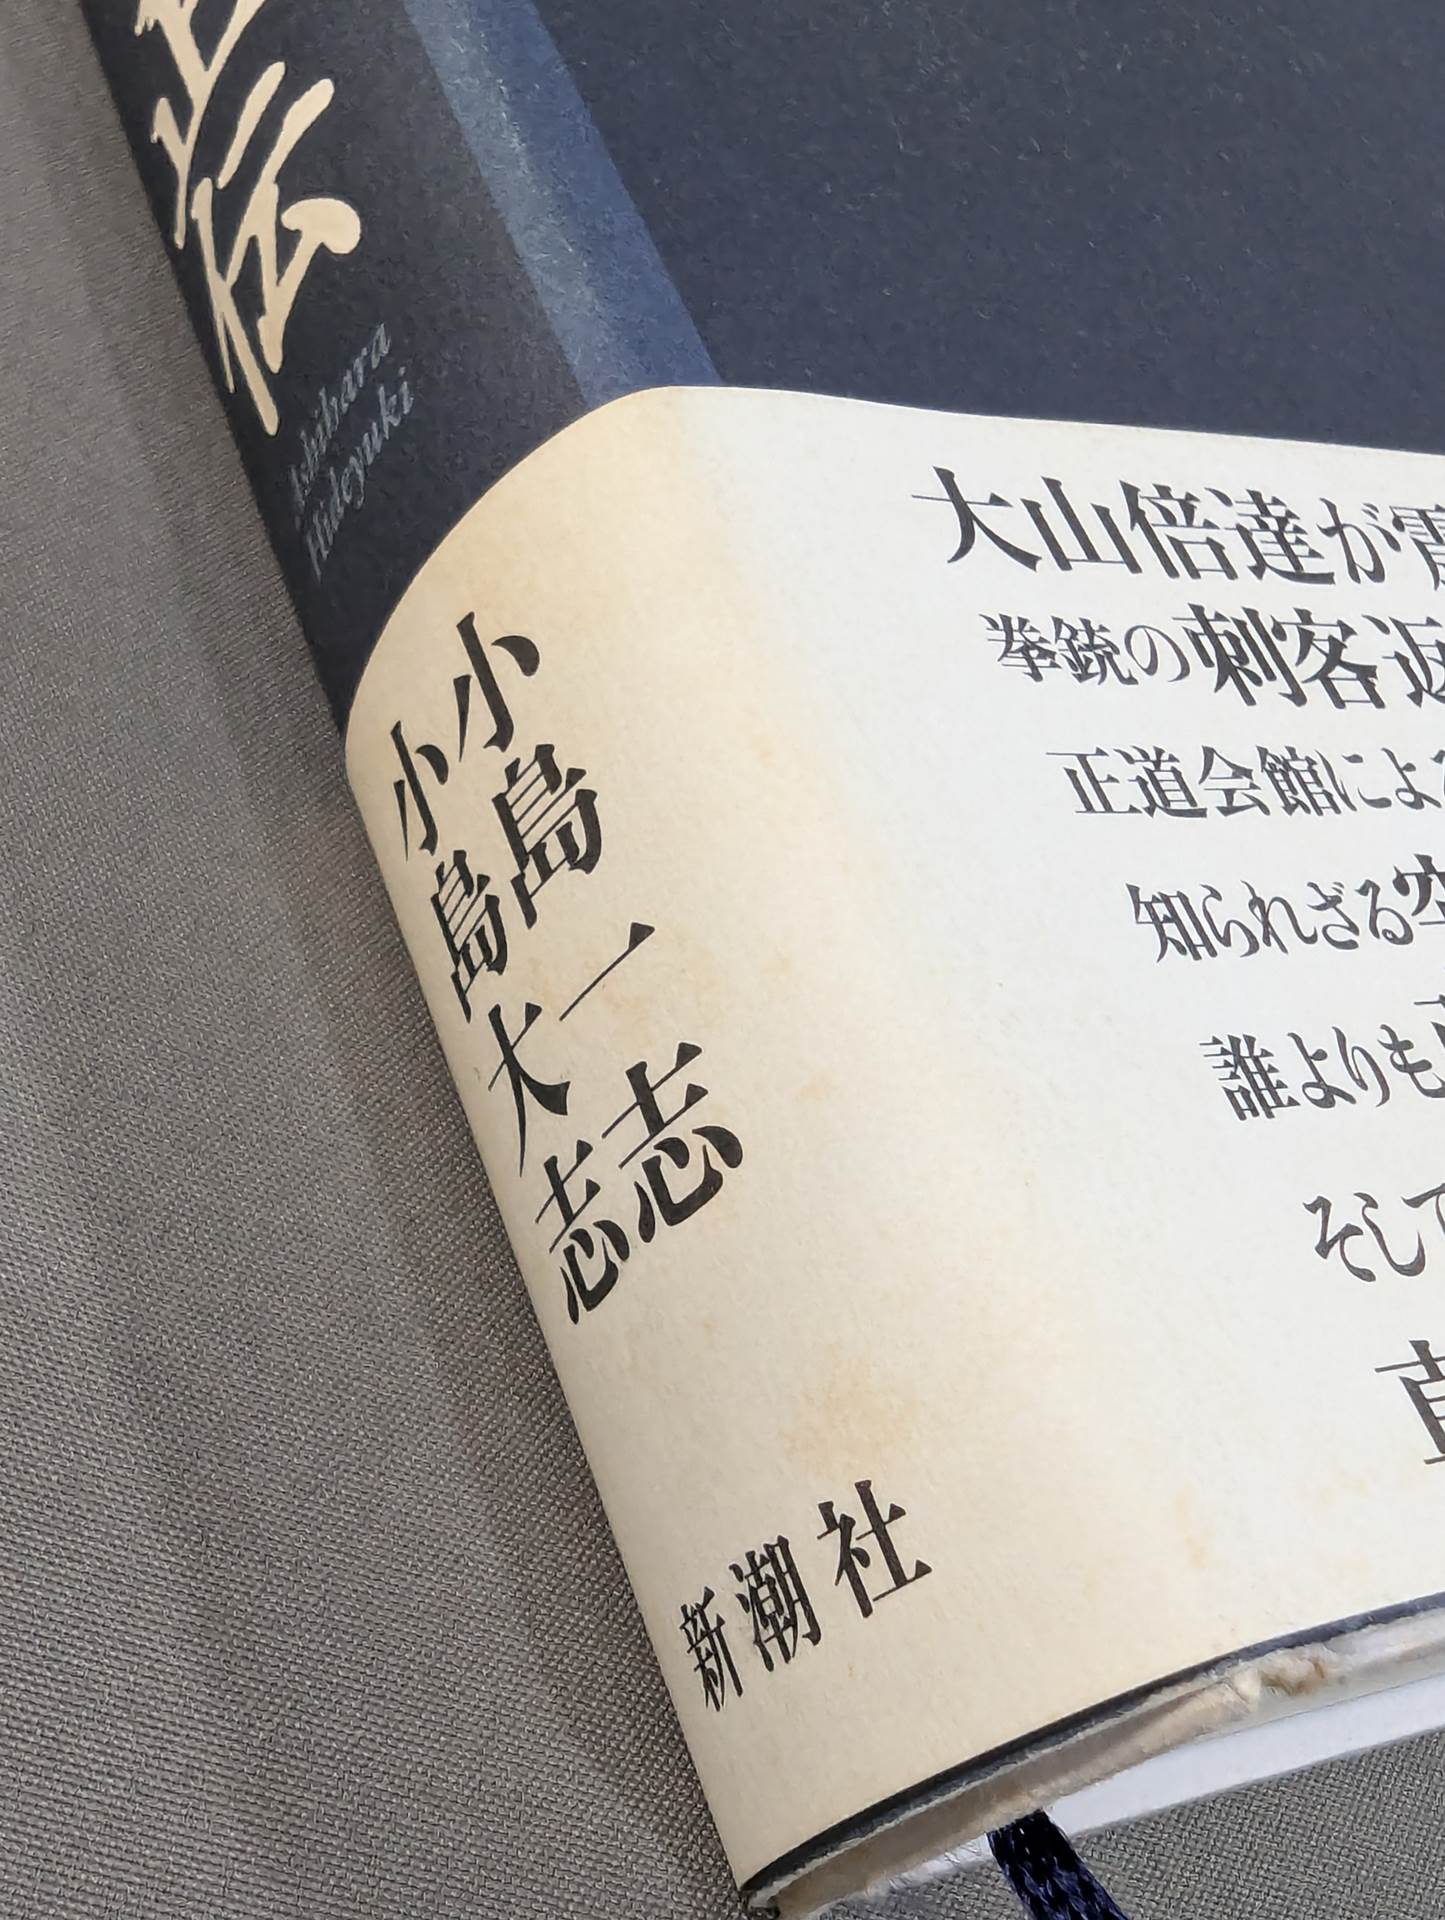 伝
Ashihara
Hideyuki
小島一志
小島大志
新潮社
大山倍達が震
拳銃の刺客返
正道会館による
知られざる空
誰よりも
そして